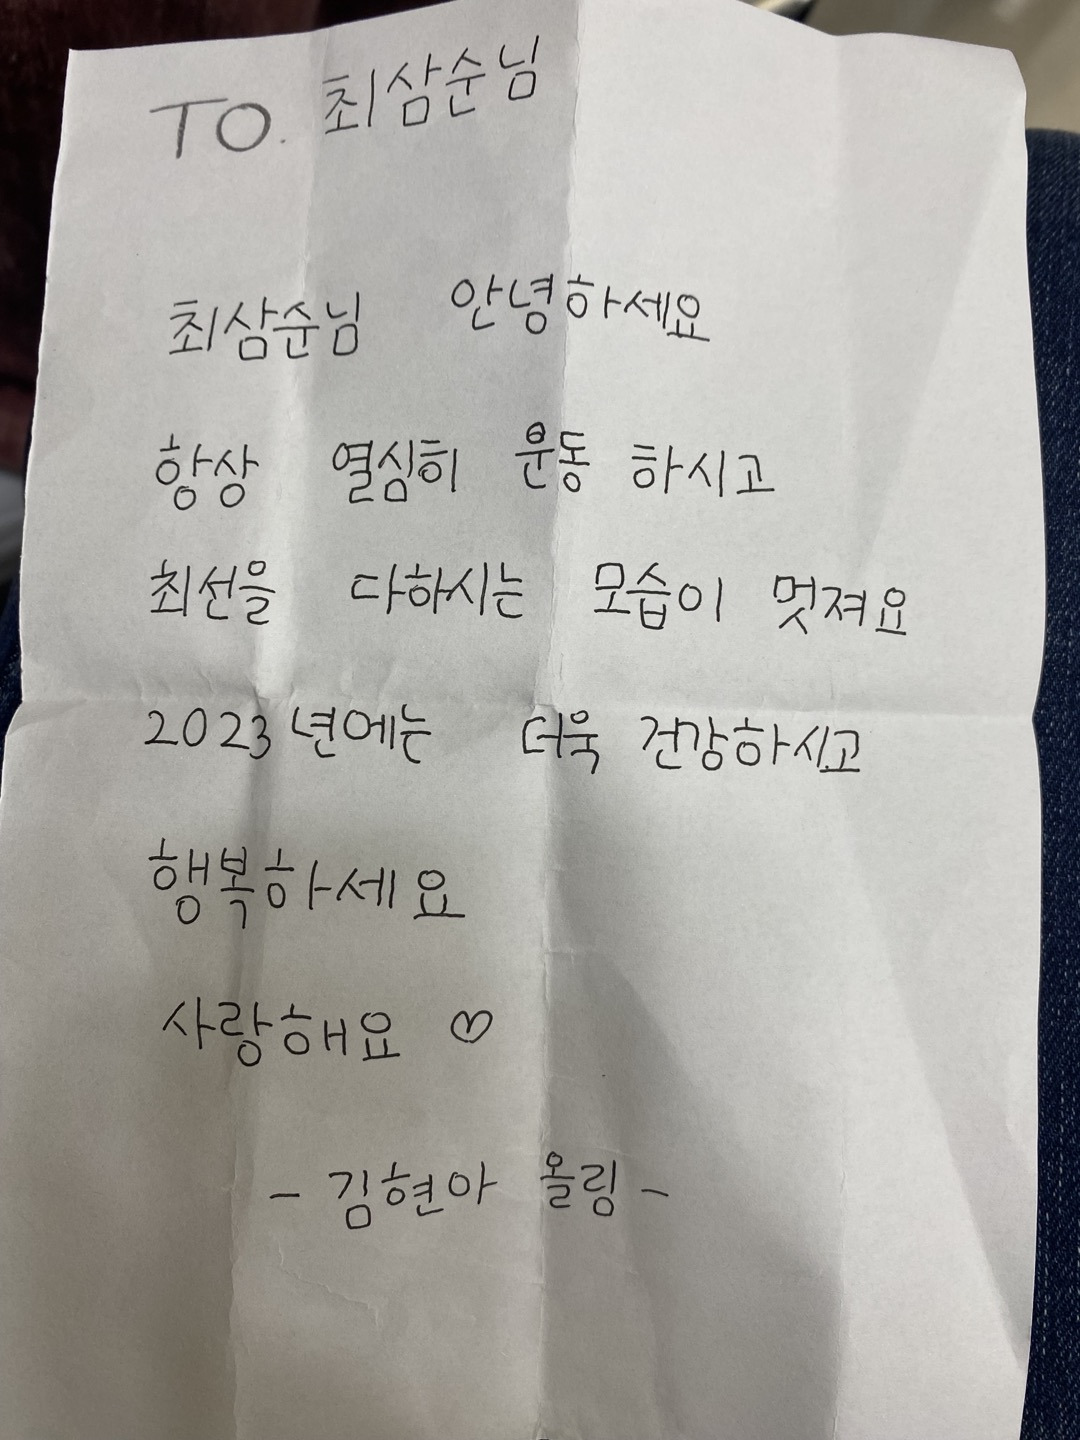 TO. 최삼순님
최삼순님 안녕하세요
항상 열심히 운동 하시고
최선을 다하시는 모습이 멋져요
2023년에는 더욱 건강하시고
행복하세요
사랑해요 ♡
- 김현아 올림 -